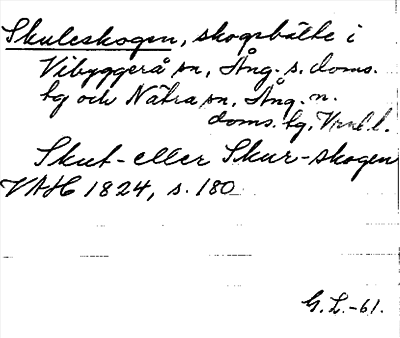 Skuleskogen, skogsbälte i
Vibyggerå sn, Ång. s. doms.
tg och Nätra sn, Ång. n.
doms. tg, Vnl l.
Skut- eller Skur-skogen
VAH 1824, s. 180
G. L. -61.